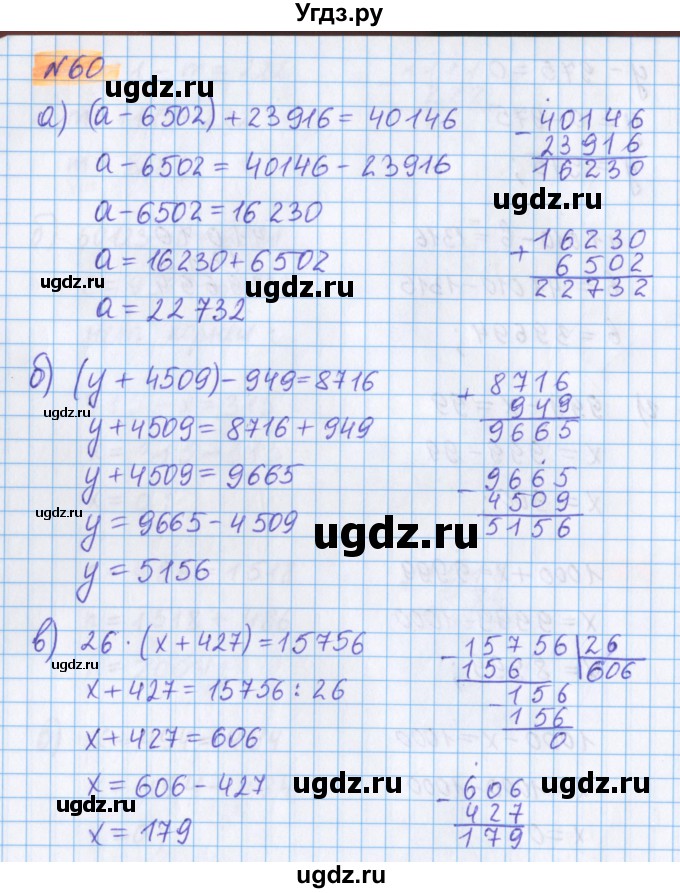 Угдз.ру
№60
ugdz.ru
а) (a - 6502) + 23916 = 40146
a - 6502 = 40146 - 23916
a - 6502 = 16230
a = 16230 + 6502
a = 22732
- 40146
23916
16230
ugdz.ru
+ 16230
6502
22732
ugdz.ru
ugdz.ru
б) (y + 4509) - 949 = 8716
y + 4509 = 8716 + 949
y + 4509 = 9665
y = 9665 - 4509
y = 5156
+ 8716
949
9665
- 9665
4509
5156
ugdz.ru
ugdz.ru
в) 26 · (x + 427) = 15756
x + 427 = 15756 : 26
x + 427 = 606
x = 606 - 427
x = 179
- 15756 26
156 606
- 156
156
0
- 606
427
179
ugdz.ru
ugdz.ru
ugdz.ru
ugdz.ru
ugdz.ru
ugdz.ru